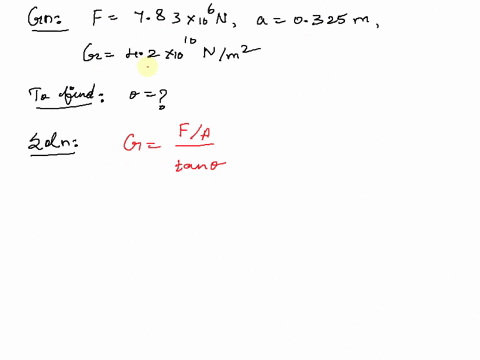 Gn: F = 7.83 × 10⁶ N, a = 0.325 m,
G = 4.2 × 10¹⁰ N/m²
To find: θ = ?
Soln: G = F/A / tanθ